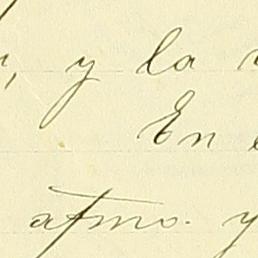 y la
En
afmo. y